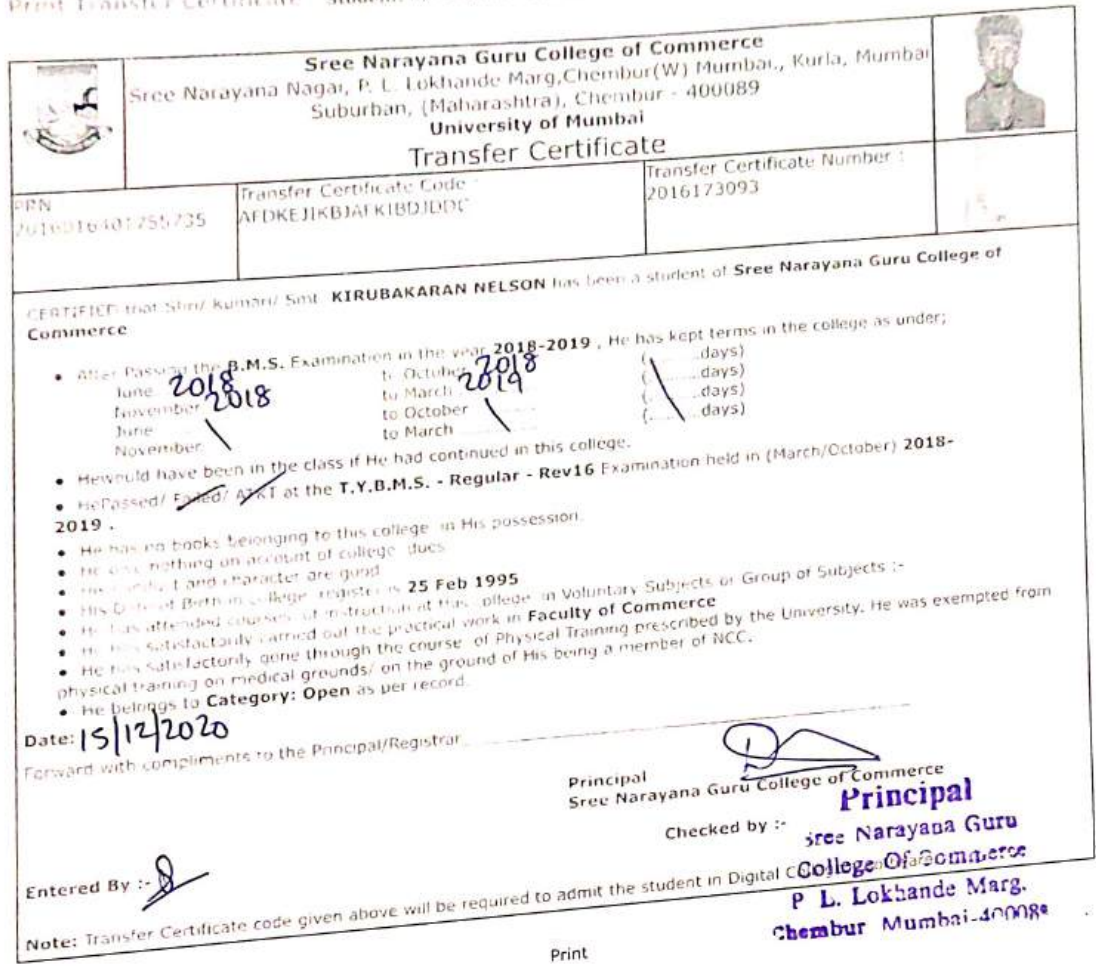 Print Transfer Certificate
Sree Narayana Guru College of Commerce
Sree Narayana Nagar, P. L. Lokhande Marg,Chembur(W) Mumbai., Kurla, Mumbai
Suburban, (Maharashtra), Chembur - 400089
University of Mumbai
Transfer Certificate
PRN
2016016401255735
Transfer Certificate Code :
Transfer Certificate Number :
2016173093
CERTIFIED that Shri/ Kumari/ Smt. KIRUBAKARAN NELSON has been a student of Sree Narayana Guru College of
Commerce
• After Passing the B.M.S. Examination in the year 2018-2019 , He has kept terms in the college as under;
June 2018 to October 2018 (.........days)
November 2018 to March 2019 (.........days)
June to October (.........days)
November to March (.........days)
• Hewould have been in the class if He had continued in this college.
• HePassed/ Failed/ ATKT at the T.Y.B.M.S. - Regular - Rev16 Examination held in (March/October) 2018-
2019 .
• He has no books belonging to this college in His possession.
• He nothing on account of college dues
• and character are good
• His Date of Birth in college register is 25 Feb 1995
• He has attended courses of instruction at this college in Voluntary Subjects or Group of Subjects :-
• He has satisfactorily carried out the practical work in Faculty of Commerce
• He has satisfactorily gone through the course of Physical Training prescribed by the University. He was exempted from
physical training on medical grounds/ on the ground of His being a member of NCC.
• He belongs to Category: Open as per record.
Date: 15/12/2020
Forward with compliments to the Principal/Registrar
Principal
Sree Narayana Guru College of Commerce
Checked by :-
Principal
Sree Narayana Guru
College Of Commerce
P L. Lokhande Marg.
Chembur Mumbai-400089
Entered By :-
Note: Transfer Certificate code given above will be required to admit the student in Digital
Print